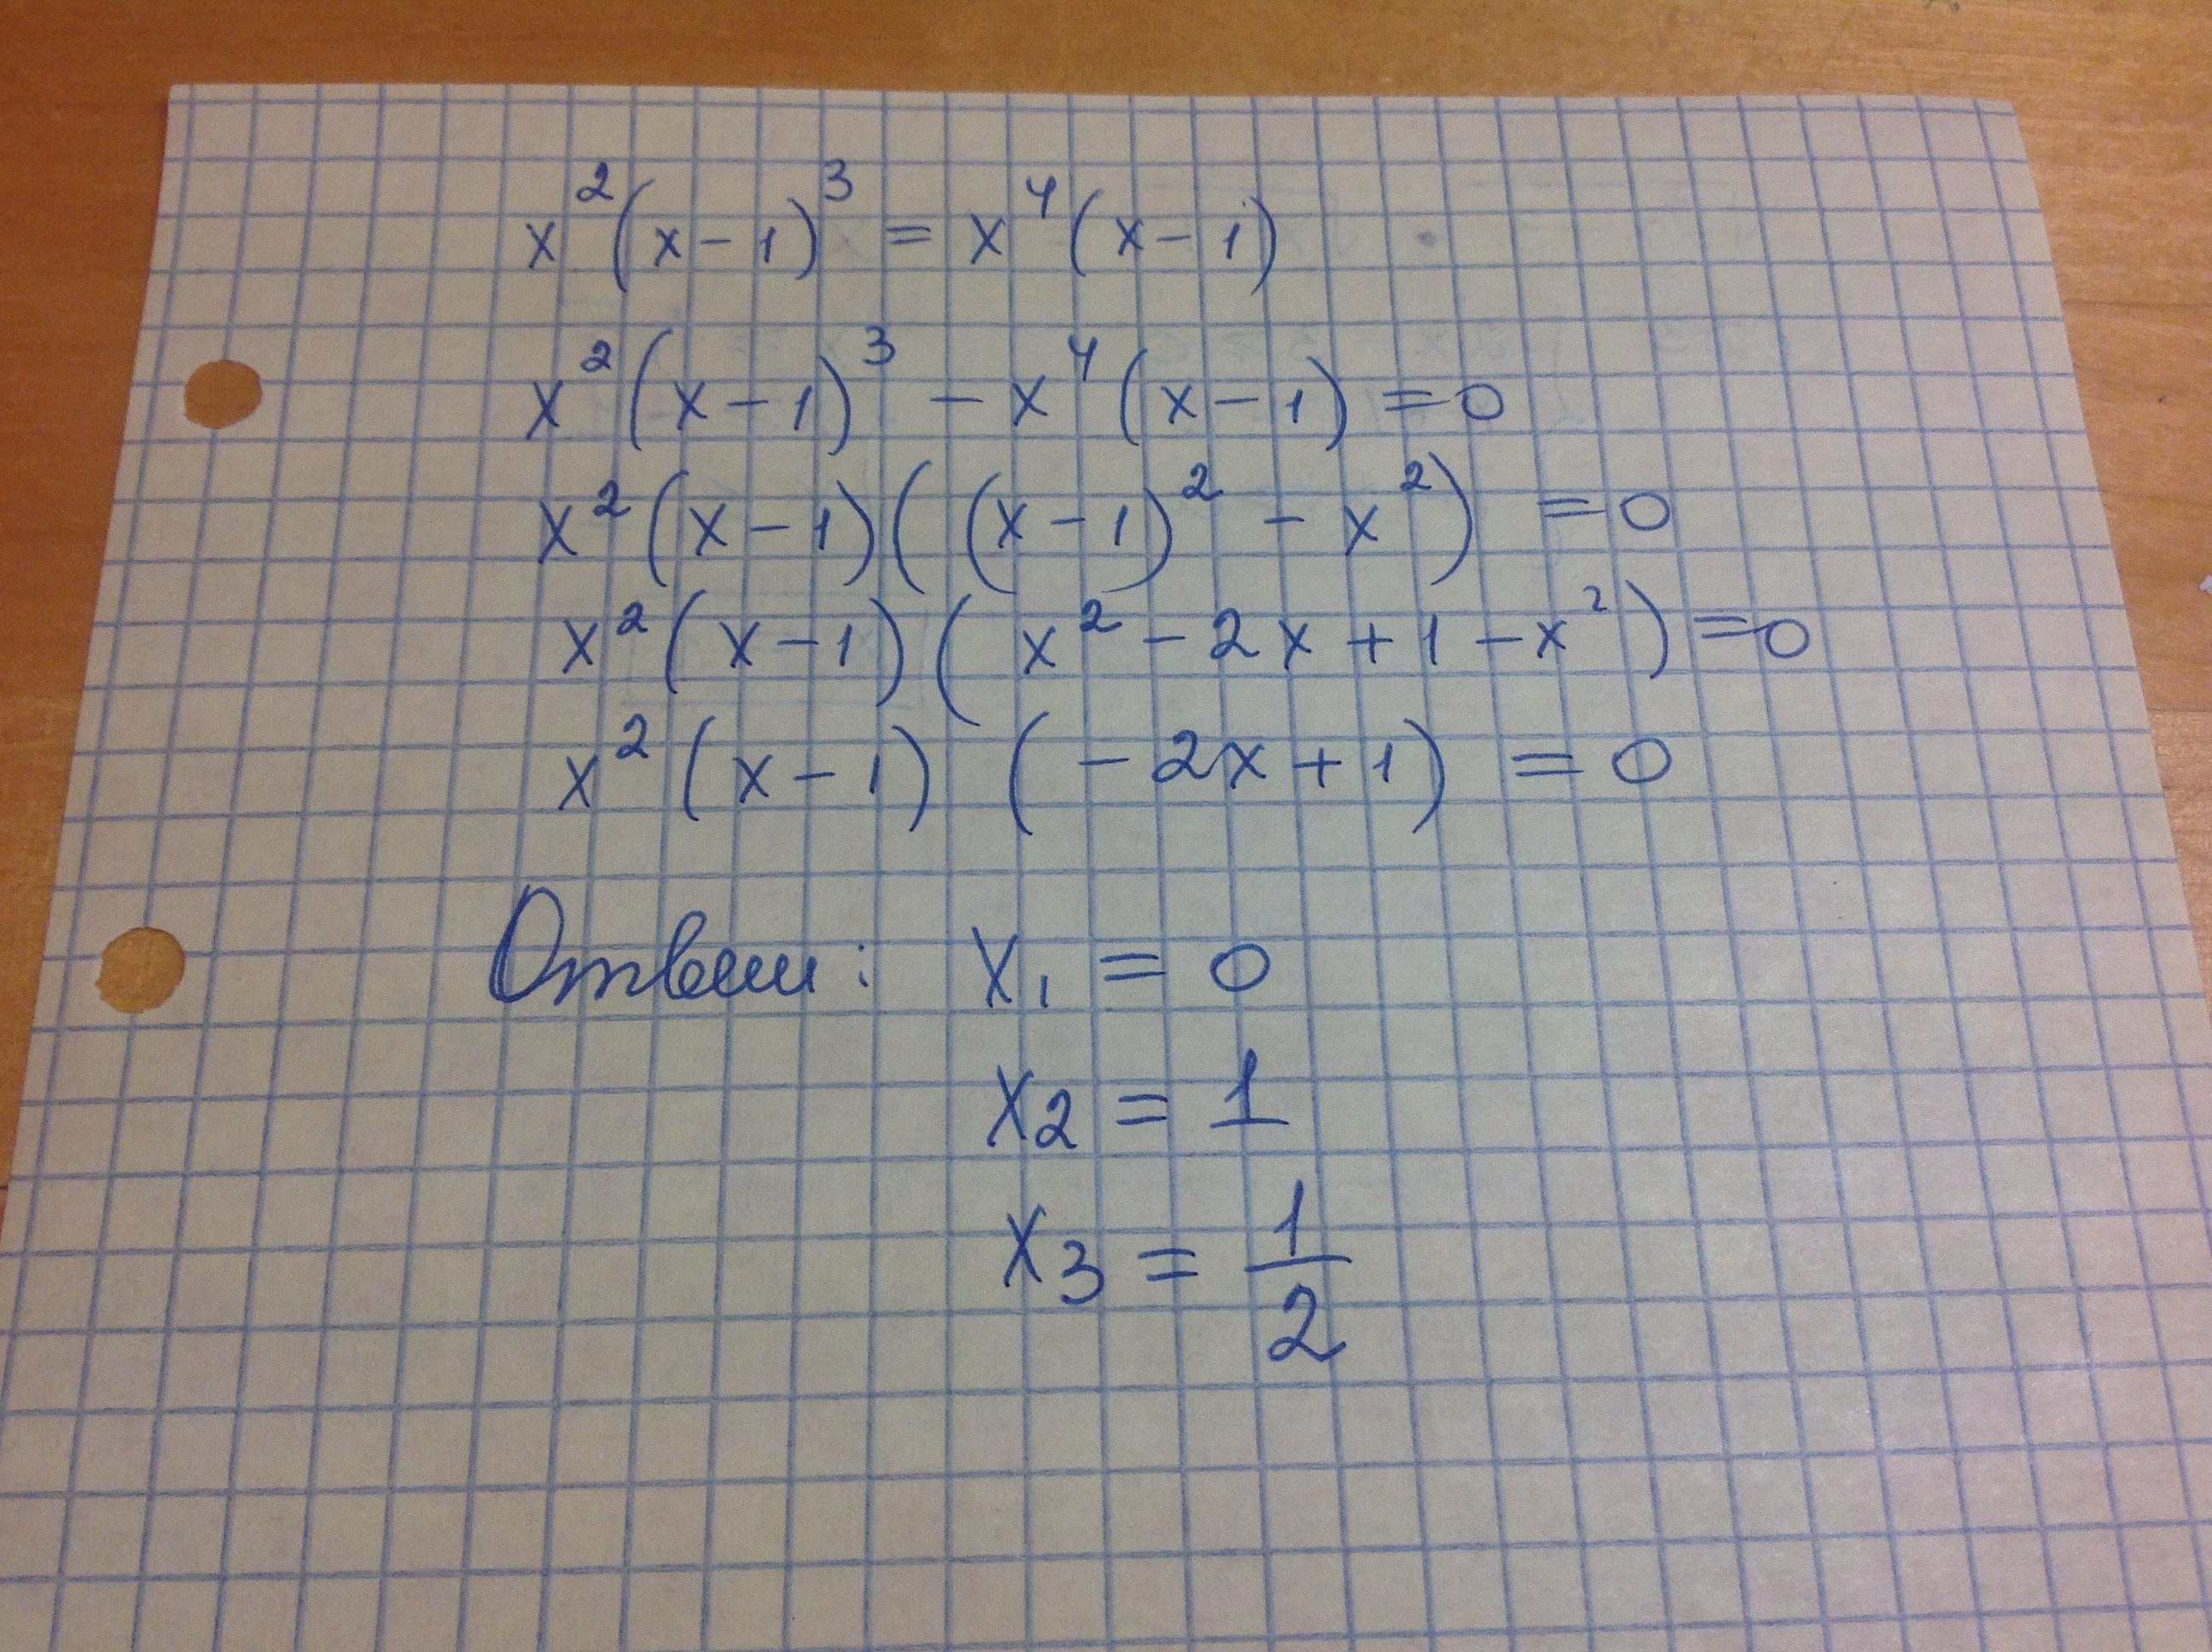 x²(x-1)³ = x⁴(x-1)
x²(x-1)³ - x⁴(x-1) = 0
x²(x-1)((x-1)² - x²) = 0
x²(x-1)(x² - 2x + 1 - x²) = 0
x²(x-1)(-2x+1) = 0
Ответ: x₁ = 0
x₂ = 1
x₃ = 1/2